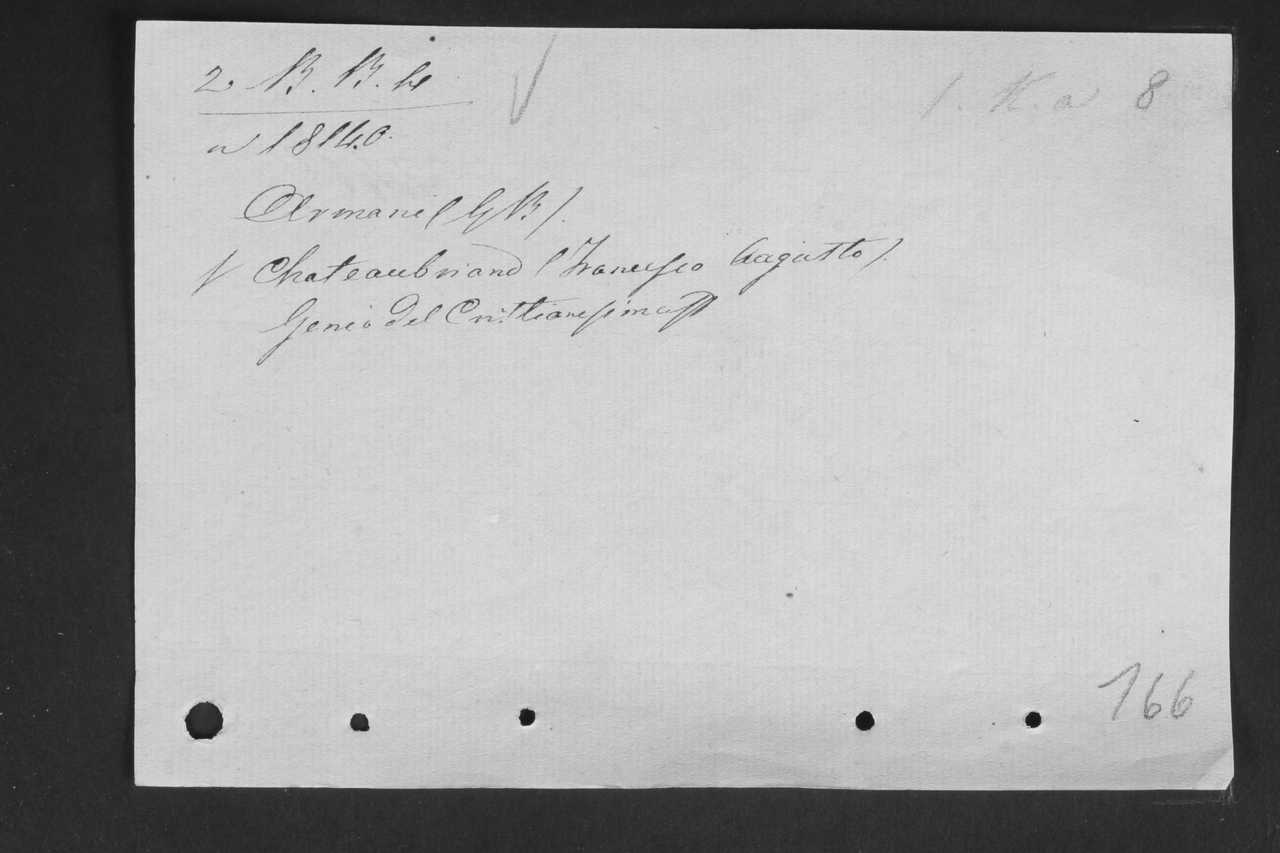 2 B. B. 4
1. K. a 8
n 1814.0.
Armani (G B).
V Chateaubriand (Francesco Augusto).
Genio del Cristianesimo
166